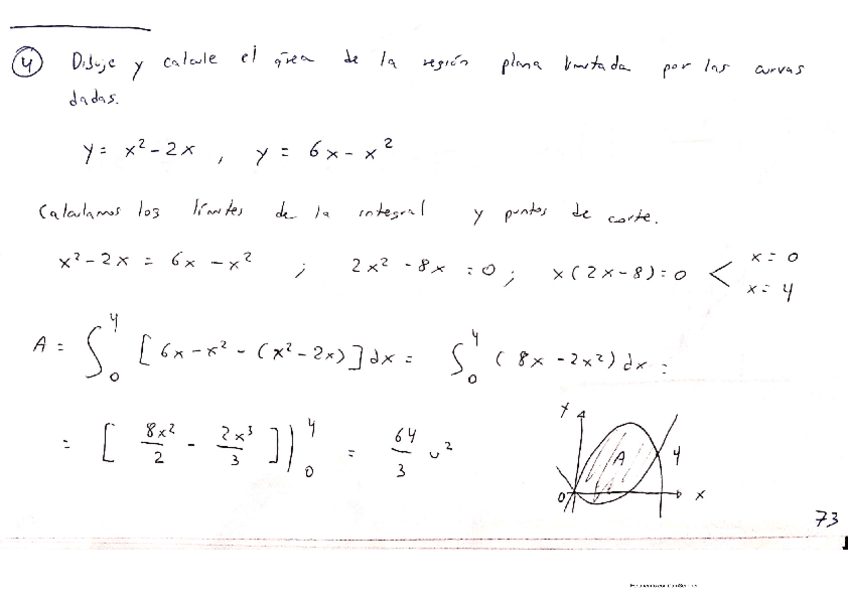 4 Dibuje y calcule el área de la región plana limitada por las curvas
dadas.
y = x² - 2x , y = 6x - x²
Calculamos los límites de la integral y puntos de corte.
x² - 2x = 6x - x² ; 2x² - 8x = 0 ; x(2x-8) = 0 < x = 0
x = 4
A = ∫₀⁴ [6x - x² - (x² - 2x)] dx = ∫₀⁴ (8x - 2x²) dx =
= [ 8x²/2 - 2x³/3 ]|₀⁴ = 64/3 u²
y
A
4
0
x
73